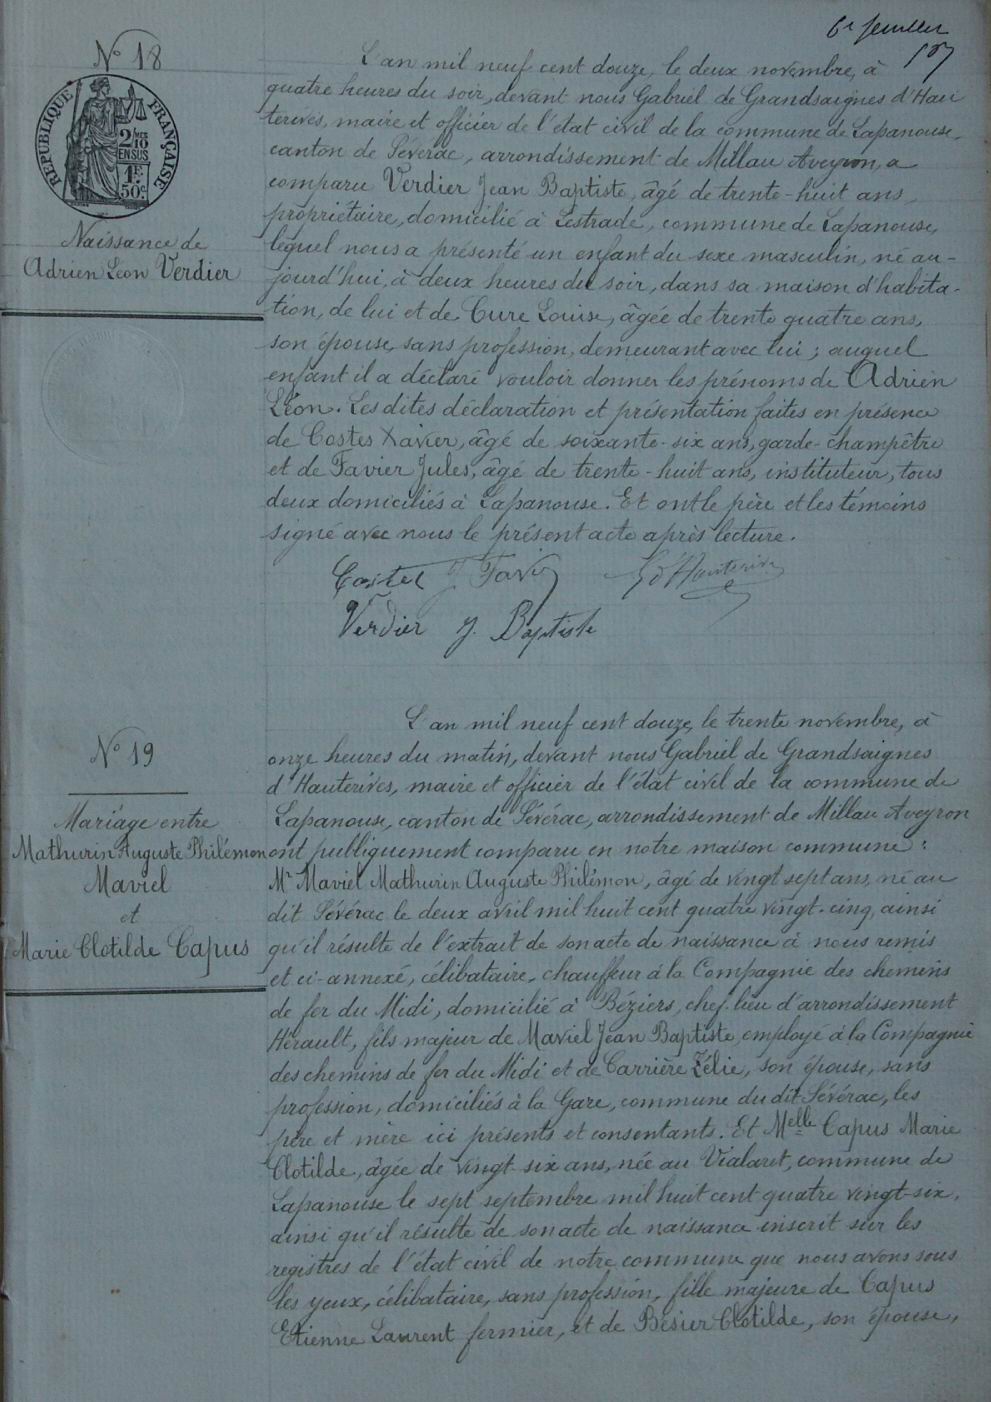 6e feuillet
N° 18
RÉPUBLIQUE FRANÇAISE
2/10
EN SUS
1F
50c
Naissance de
Adrien Léon Verdier
L'an mil neuf cent douze, le deux novembre, à
quatre heures du soir, devant nous Gabriel de Grandsaignes d'Hau
terives, maire et officier de l'état civil de la commune de Lapanouse,
canton de Sévérac, arrondissement de Millau Aveyron, a
comparu Verdier Jean Baptiste, âgé de trente-huit ans,
propriétaire, domicilié à Lestrade, commune de Lapanouse,
lequel nous a présenté un enfant du sexe masculin, né au-
jourd'hui, à deux heures du soir, dans sa maison d'habita-
tion, de lui et de Cure Louise, âgée de trente quatre ans,
son épouse, sans profession, demeurant avec lui ; auquel
enfant il a déclaré vouloir donner les prénoms de Adrien
Léon. Les dites déclaration et présentation faites en présence
de Costes Xavier, âgé de soixante-six ans, garde-champêtre
et de Favier Jules, âgé de trente-huit ans, instituteur, tous
deux domiciliés à Lapanouse. Et ont le père et les témoins
signé avec nous le présent acte après lecture.
Costes J Favier G d'Hauterives
Verdier J. Baptiste
N° 19
Mariage entre
Mathurin Auguste Philémon
Maviel
et
Marie Clotilde Capus
L'an mil neuf cent douze, le trente novembre, à
onze heures du matin, devant nous Gabriel de Grandsaignes
d'Hauterives, maire et officier de l'état civil de la commune de
Lapanouse, canton de Sévérac, arrondissement de Millau Aveyron
ont publiquement comparu en notre maison commune :
Mr Maviel Mathurin Auguste Philémon, âgé de vingt sept ans, né au
dit Sévérac le deux avril mil huit cent quatre vingt-cinq, ainsi
qu'il résulte de l'extrait de son acte de naissance à nous remis
et ci-annexé, célibataire, chauffeur à la Compagnie des chemins
de fer du Midi, domicilié à Béziers, chef-lieu d'arrondissement
Hérault, fils majeur de Maviel Jean Baptiste, employé à la Compagnie
des chemins de fer du Midi et de Carrière Zélie, son épouse, sans
profession, domiciliés à la Gare, commune du dit Sévérac, les
père et mère ici présents et consentants. Et Melle Capus Marie
Clotilde, âgée de vingt six ans, née au Vialaret, commune de
Lapanouse le sept septembre mil huit cent quatre vingt-six,
ainsi qu'il résulte de son acte de naissance inscrit sur les
registres de l'état civil de notre commune que nous avons sous
les yeux, célibataire, sans profession, fille majeure de Capus
Etienne Laurent fermier, et de Bésier Clotilde, son épouse,